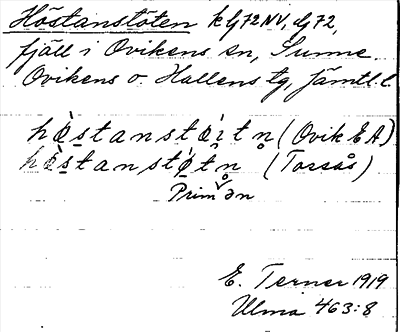 Höstanstöten k G72NV, dG72,
fjäll i Ovikens sn, Sunne.
Ovikens o. Hallens tg, Jämtl. l.
hø̀stanstø̀i̭tn̥ (Ovik E A)
hø̀stanstø̀tn̥ (Tossås)
Prim ən
E. Terner 1919
Ulma 463:8